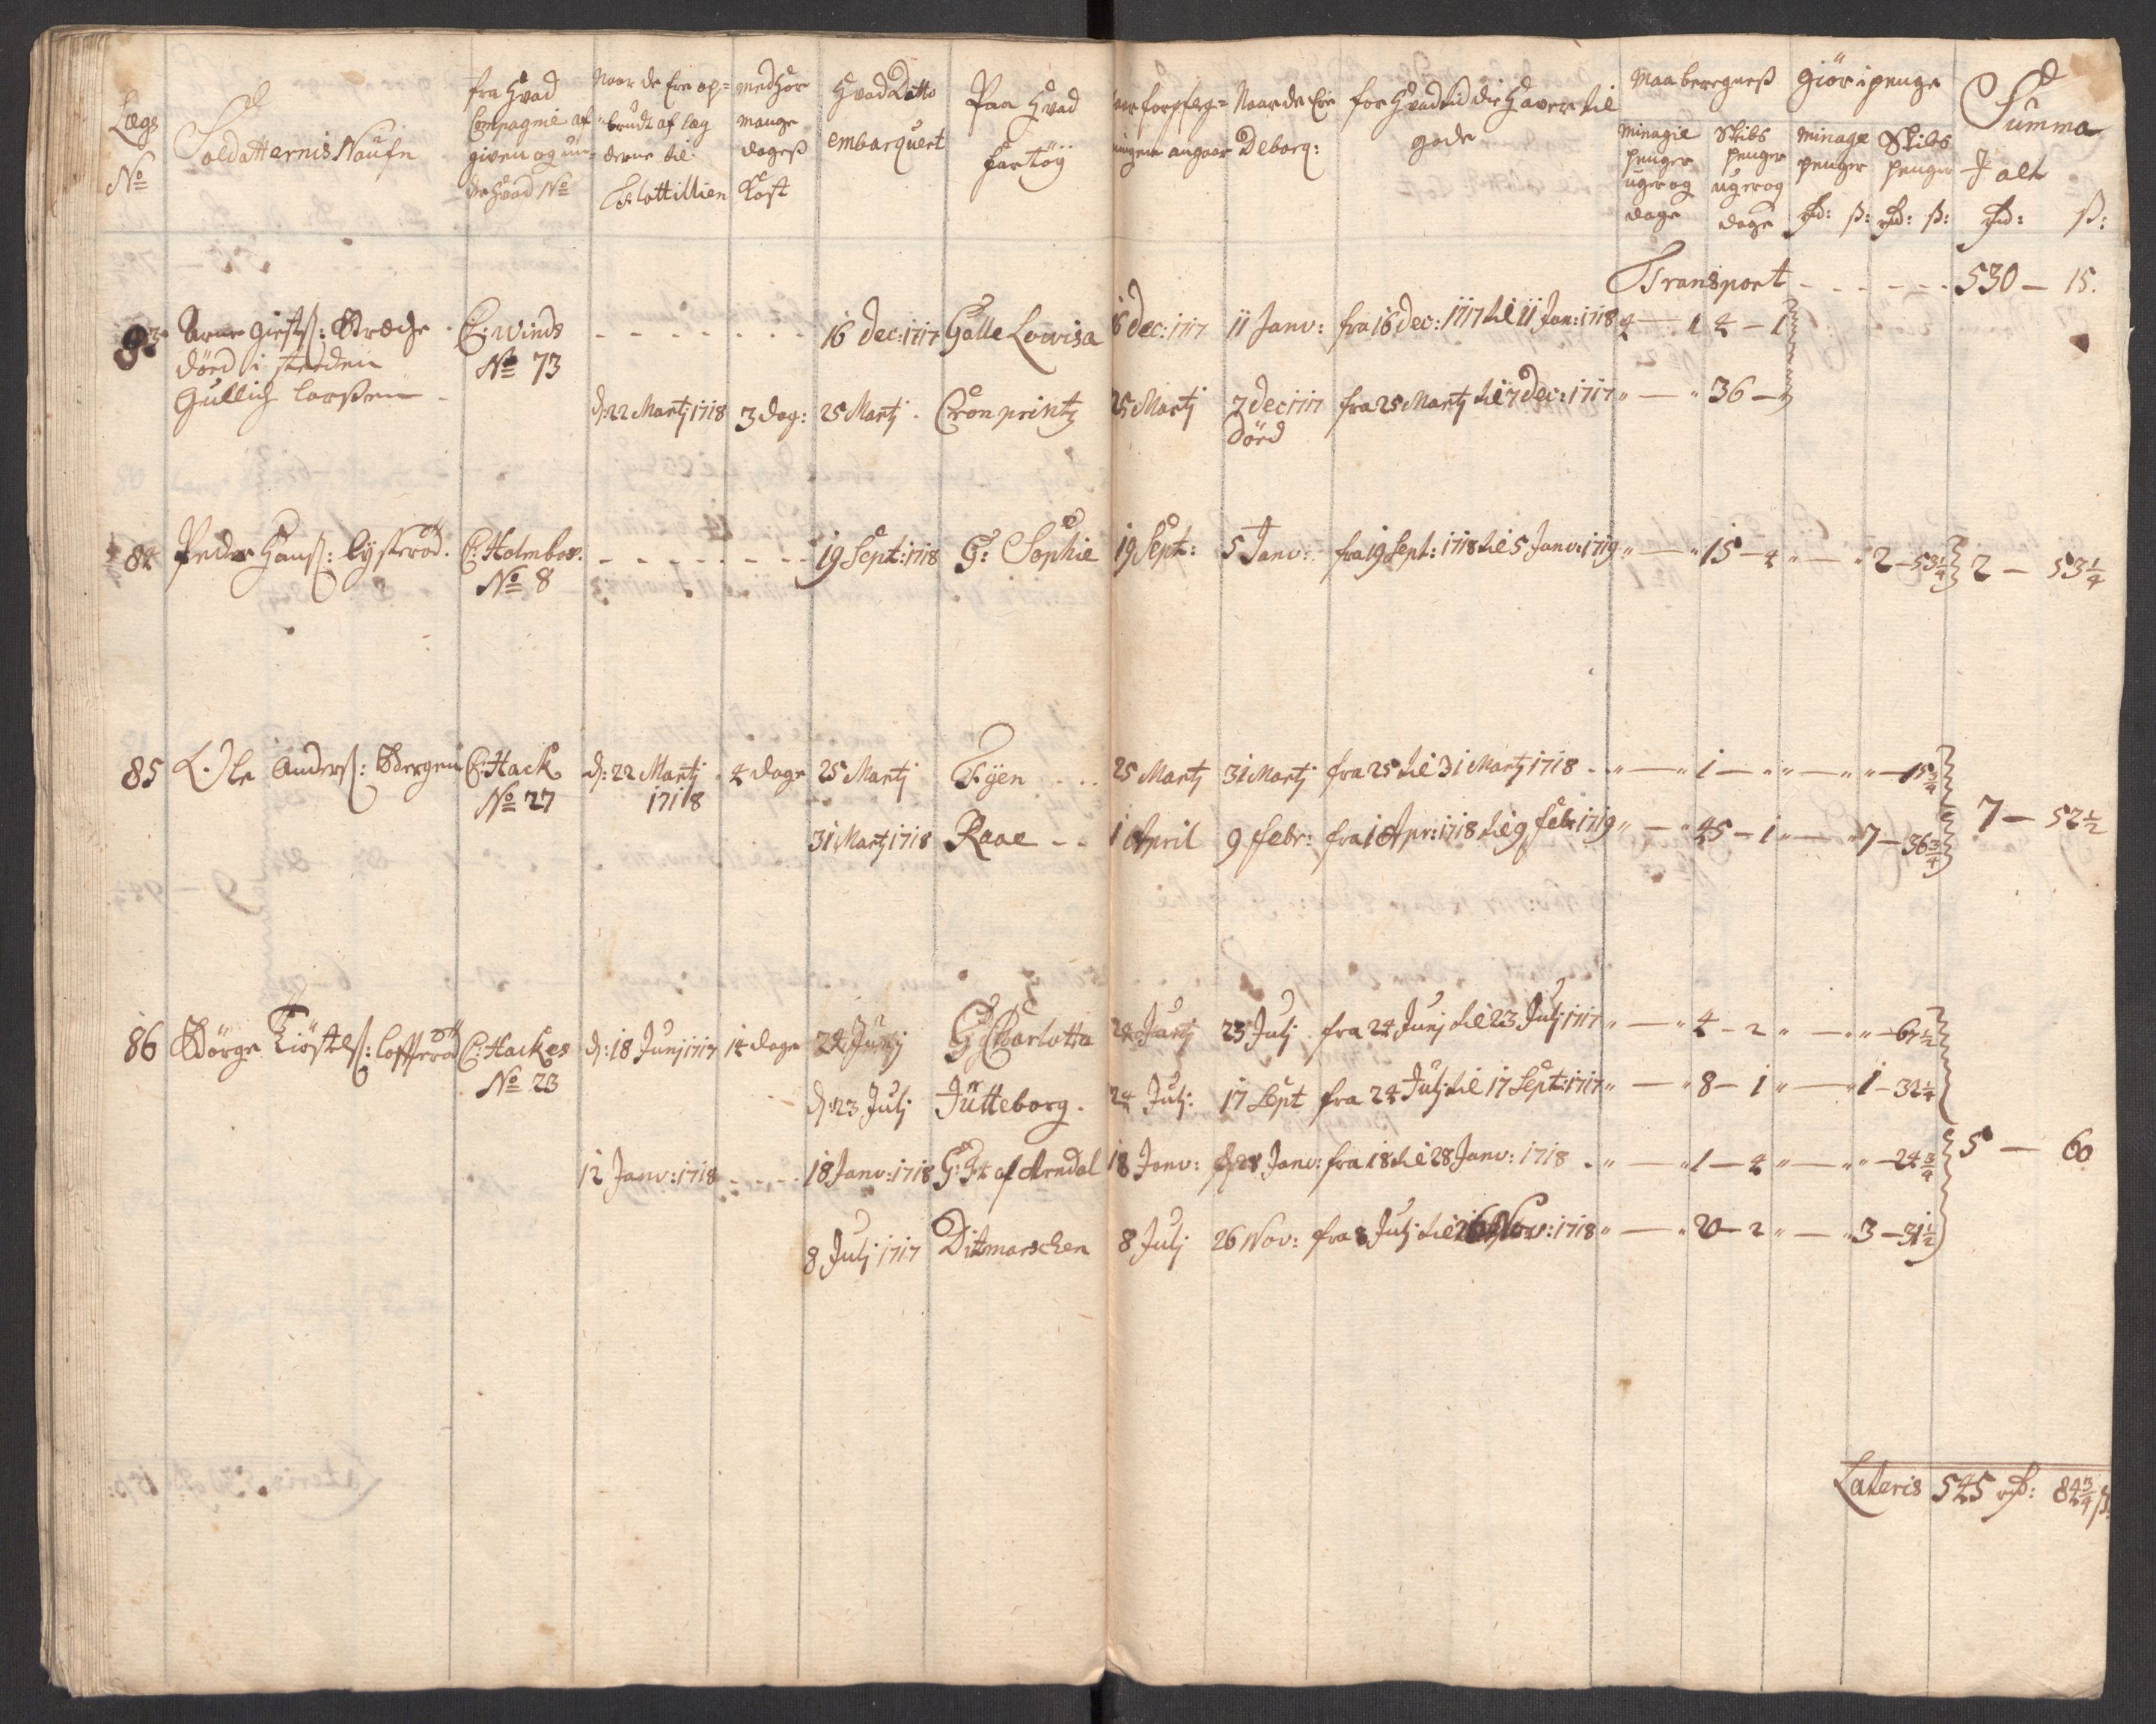 Legs No
Soldatternis Naufn
fra Hvad Compagnie af given og un der Hvad No
Naar de Ere op= brudt af leg derne til Flottillien
med hor mange dages Kost
Hvad Datto embarquert
Paa Hvad Fartöÿ
forpfleg= ningen angaar
Naar de Ere Debarq:
for Hvad tid de Haver til gode
Maa beregnes
minagie penger uger og dage
Skibs penger uger og dage
giör i penge
minage penger
Skibs penger
rd: ß: rd: ß:
Summa J alt
rd: ß:
Transport - - - - - - 530 - 15.
83 Arne
död i steden
Gullich Larßen
C: Winds No 73
16 Dec: 1717 Galle Lowisa 16 Dec: 1717 11 Janv: fra 16 Dec: 1717 til 11 Jan: 1718 4 - 1 4 - 1
d: 22 Martj 1718 3 dag: 25 Martj Cronprintz 25 Martj 7 Dec 1717 död fra 25 Martj til 7 Dec: 1717 " - " 36 -
84 Peder Hans: Lysterød. C: Holmboe. No 8 - - - - - - - 19 Sept: 1718 G: Sophie 19 Sept: 5 Janv: fra 19 Sept: 1718 til 5 Janv: 1719 " - " 15 - 4 " - " 2 - 53 1/4 2 - 53 1/4
85 Ole Anders: Bergen C: Hack No 27 d: 22 Martj 1718 4 dage 25 Martj Fÿen 25 Martj 31 Martj fra 25 til 31 Martj 1718 " - " 1 - " " - " " - 15 3/4
31 Martj 1718 Raae 1 April 9 Febr: fra 1 Apr: 1718 til 9 Febr 1719 " - " 45 - 1 " - " 7 - 36 3/4 7 - 52 1/2
86 Börge C: Hackes No 23 d: 18 Junj 1717 14 dage 24 Junj G: Charlotta 24 Junj 23 Julj fra 24 Junj til 23 Julj 1717 " - " 4 - 2 " - " " - 67 1/2
d: 23 Julj Jütteborg. 24 Julj: 17 Sept fra 24 Julj til 17 Sept: 1717 " - " 8 - 1 " - " 1 - 32 1/4
12 Janv: 1718 - - - - 18 Janv: 1718 G: Pr: af Arndal 18 Janv: 28 Janv: fra 18 til 28 Janv: 1718 . " - " 1 - 4 " - " " - 24 3/4 5 - 60
8 Julj 1717 Ditmarschen 8 Julj 26 Nov: fra 8 Julj til 26 Nov: 1718 " - " 20 - 2 " - " 3 - 31 1/2
Lateris 545 rd: 84 3/4 ß